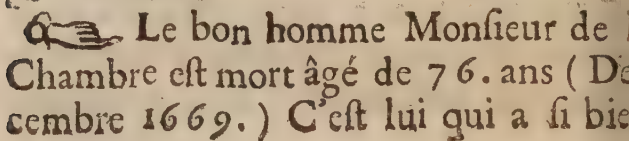 ☞ Le bon homme Monſieur de
Chambre eſt mort âgé de 76. ans ( De
cembre 1669. ) C'eſt lui qui a ſi bie